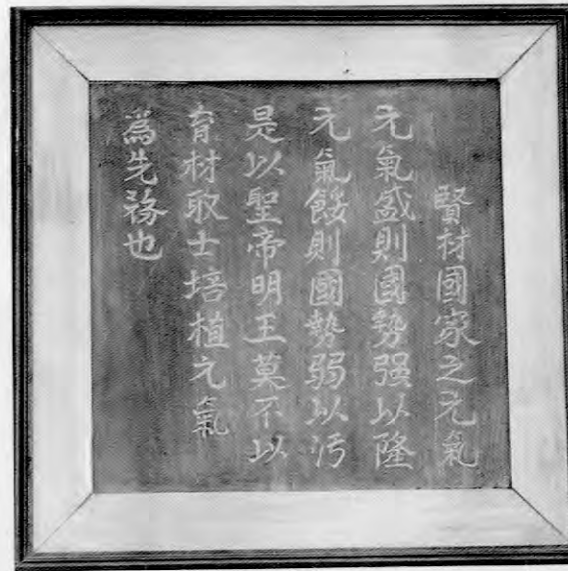 賢材國家之元氣
元氣盛則國勢强以隆
元氣餒則國勢弱以汚
是以聖帝明王莫不以
育材取士培植元氣
爲先務也